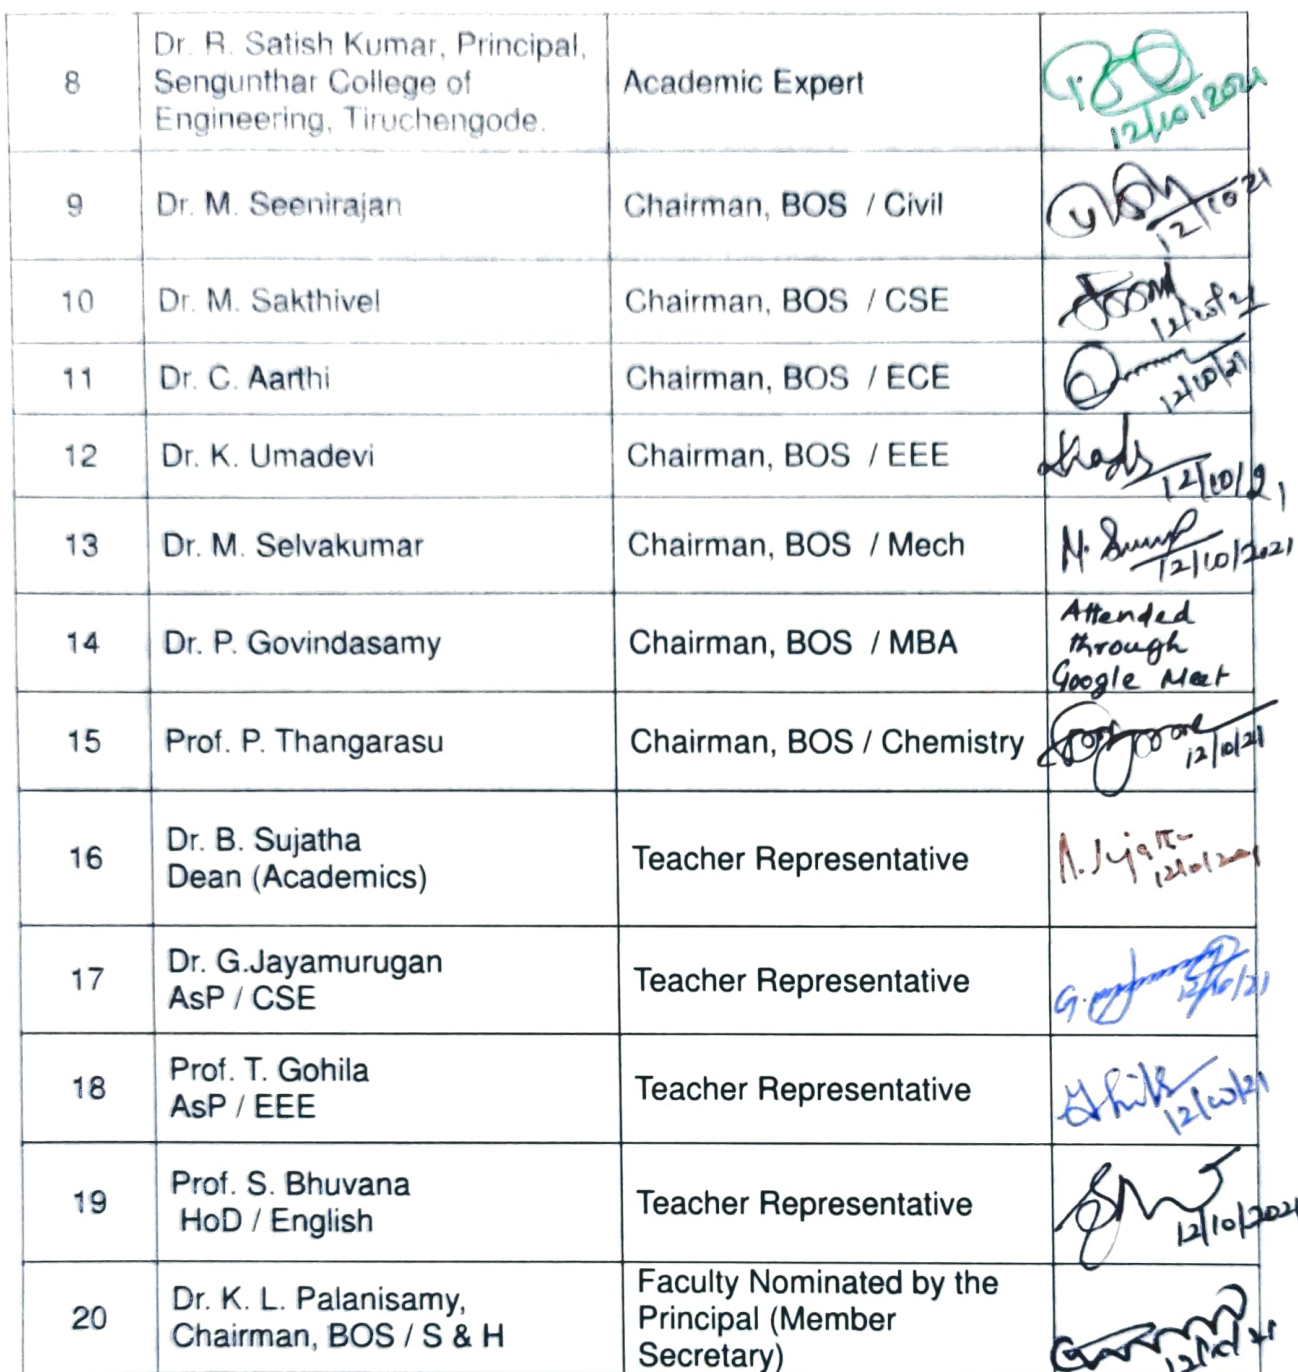 8
Dr. R. Satish Kumar, Principal,
Sengunthar College of
Engineering, Tiruchengode.
Academic Expert
12/10/2021
9
Dr. M. Seenirajan
Chairman, BOS / Civil
12/10/21
10
Dr. M. Sakthivel
Chairman, BOS / CSE
12/10/21
11
Dr. C. Aarthi
Chairman, BOS / ECE
12/10/21
12
Dr. K. Umadevi
Chairman, BOS / EEE
12/10/21
13
Dr. M. Selvakumar
Chairman, BOS / Mech
12/10/2021
14
Dr. P. Govindasamy
Chairman, BOS / MBA
Attended
through
Google Meet
15
Prof. P. Thangarasu
Chairman, BOS / Chemistry
12/10/21
16
Dr. B. Sujatha
Dean (Academics)
Teacher Representative
12/10/2021
17
Dr. G.Jayamurugan
AsP / CSE
Teacher Representative
12/10/21
18
Prof. T. Gohila
AsP / EEE
Teacher Representative
12/10/21
19
Prof. S. Bhuvana
HoD / English
Teacher Representative
12/10/2021
20
Dr. K. L. Palanisamy,
Chairman, BOS / S & H
Faculty Nominated by the
Principal (Member
Secretary)
12/10/21